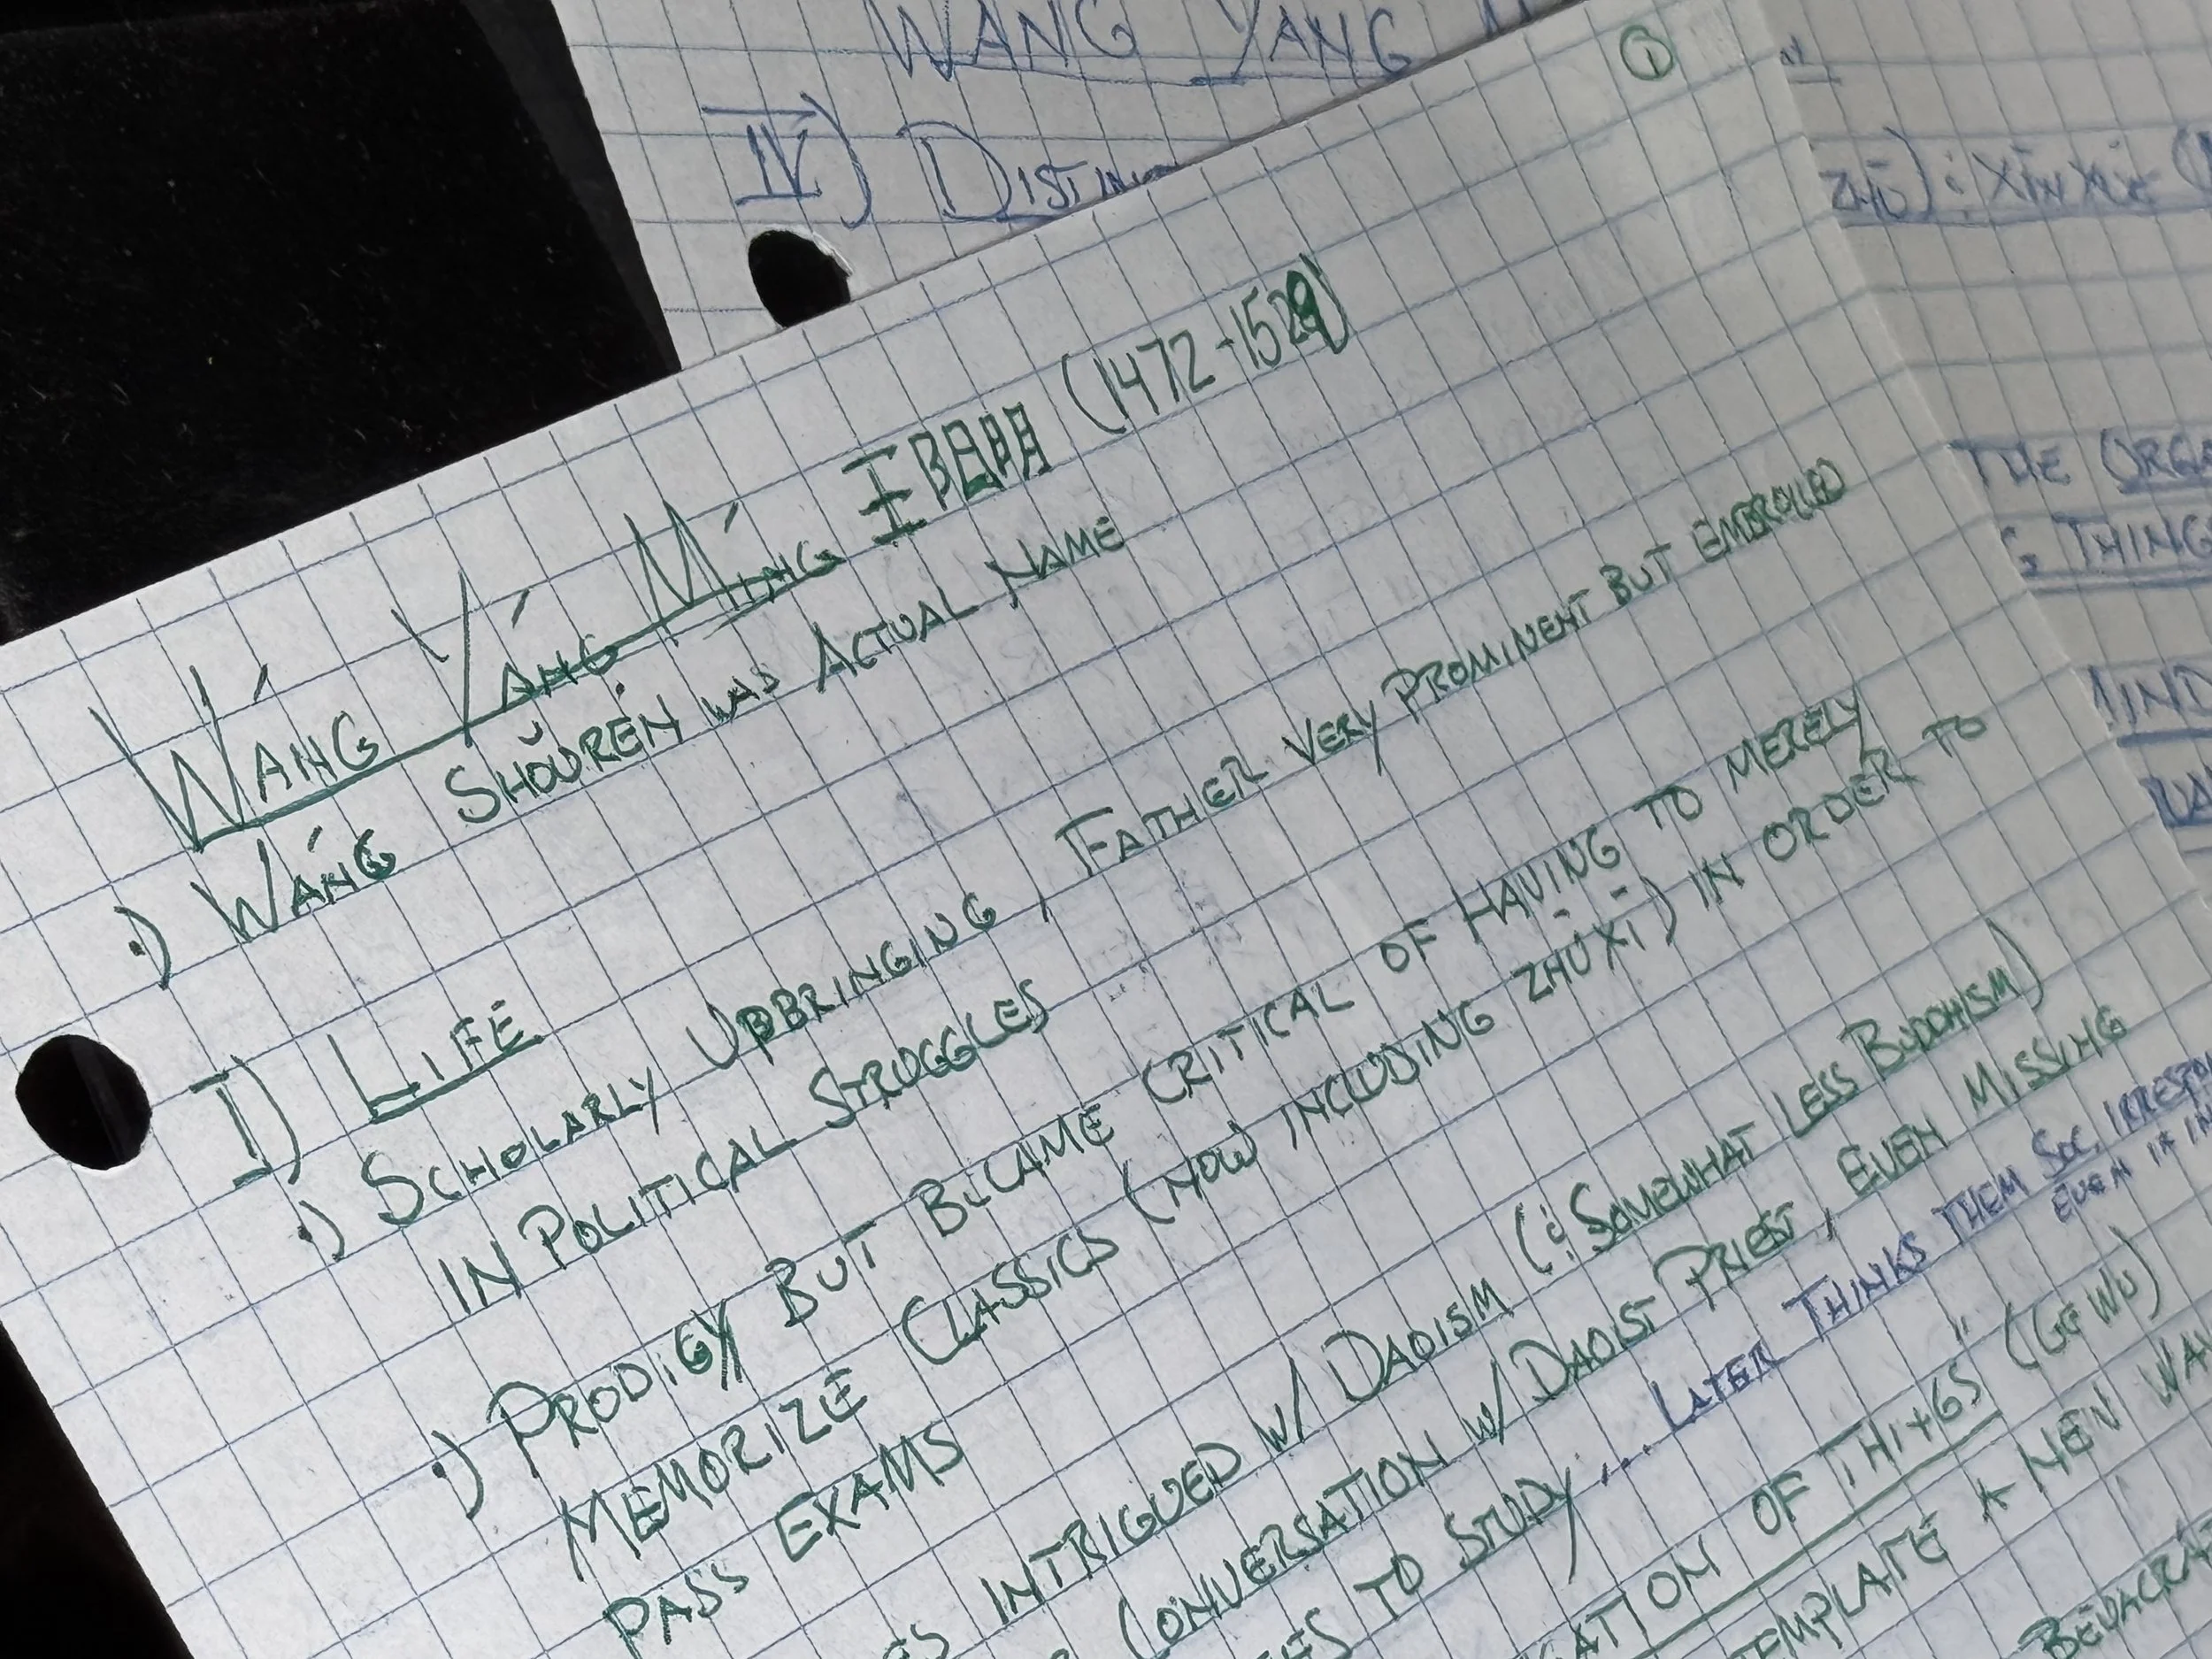 WANG YANG M
IV) DISTIN
ZHŪ): XĪNXUÉ (
THE ORGA
G THING
MIND
①
WÁNG YÁNG MÍNG 王阳明 (1472-1529)
·) WÁNG SHǑURÉN WAS ACTUAL NAME
I) LIFE
·) SCHOLARLY UPBRINGING, FATHER VERY PROMINENT BUT EMBROILED
IN POLITICAL STRUGGLES
·) PRODIGY BUT BECAME CRITICAL OF HAVING TO MERELY
MEMORIZE CLASSICS (NOW INCLUDING ZHŪXĪ) IN ORDER TO
PASS EXAMS
ES INTRIGUED W/ DAOISM (: SOMEWHAT LESS BUDDHISM)
CONVERSATION W/ DAOIST PRIEST, EVEN MISSING
TO STUDY... LATER THINKS THEM SOC. IRRESPON
EVEN IF IN
GATION OF THINGS" (GÉ WÙ)
TEMPLATE A NEW WAY
BEUACRA